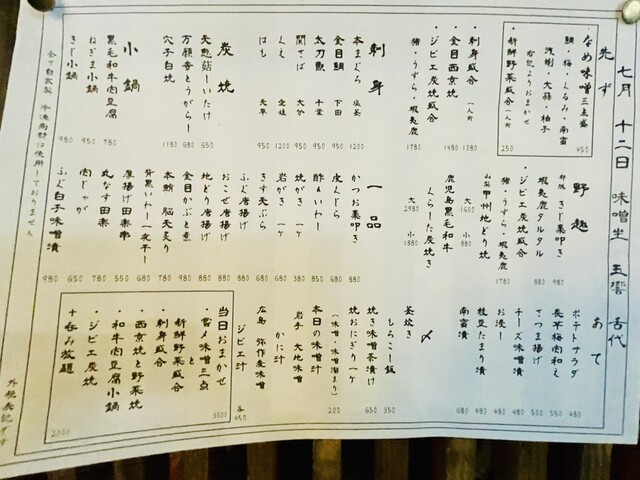 七月 十二日 味噌坐 玉響 古代
先ず
なめ味噌三点盛 450
鯛・梅・くるみ・南蛮
浅蜊・大蒜・柚子
右記よりおまかせ
・新鮮野菜盛合 一人前 250
・刺身盛合 一人前 1080
・金目西京焼 1480
・ジビエ炭焼盛合
猪・うずら・蝦夷鹿 1780
刺身
本まぐろ 塩釜 1200
金目鯛 下田 950
太刀魚 千葉 950
関さば 大分 950
くえ 愛媛 1200
はも 天草 950
炭焼
天恵菇しいたけ 650
万願寺とうがらし 680
穴子白焼 1180
小鍋
黒毛和牛肉豆腐 780
ねぎま小鍋 950
きじ小鍋 980
全て自家製 冷凍商材は使用しておりません
野趣
きじ藁叩き 980
蝦夷鹿タルタル 880
・ジビエ炭焼盛合
猪・うずら・蝦夷鹿 1780
山梨 甲州地どり焼
大1600 小880
鹿児島黒毛和牛
くらーた炭焼き
大2980 小1880
一品
かつお藁叩き 850
皮くじら 680
酢〆いわし 850
焼がき 一ケ 380
岩がき 一ケ 680
きす天ぷら 680
ふぐ唐揚げ 880
おこぜ唐揚げ 880
地どり唐揚げ 880
金目かぶと煮 680
本鮪 脳天炙り 680
背黒いわし一夜干し 680
厚揚げ田楽串 550
丸なす田楽 780
肉じゃが 650
ふぐ白子味噌漬 980
あて
ポテトサラダ 480
長芋梅肉和え 550
さつま揚げ 550
チーズ味噌漬 500
お浸し 480
枝豆たまり漬 480
南蛮漬 680
〆
釜炊き
もろこし飯
焼き味噌茶漬け 650
焼おにぎり一ケ 350
(味噌・味噌溜まり) 200
本日の味噌汁
岩手 大地味噌
かに汁
広島 弥作麦味噌
ジビエ汁 各450
当日おまかせ 3000
・嘗メ味噌三点
と
新鮮野菜盛合
・刺身盛合
・西京焼と野菜焼
・和牛肉豆腐小鍋
・ジビエ炭焼
十呑み放題 2000
外税表記です